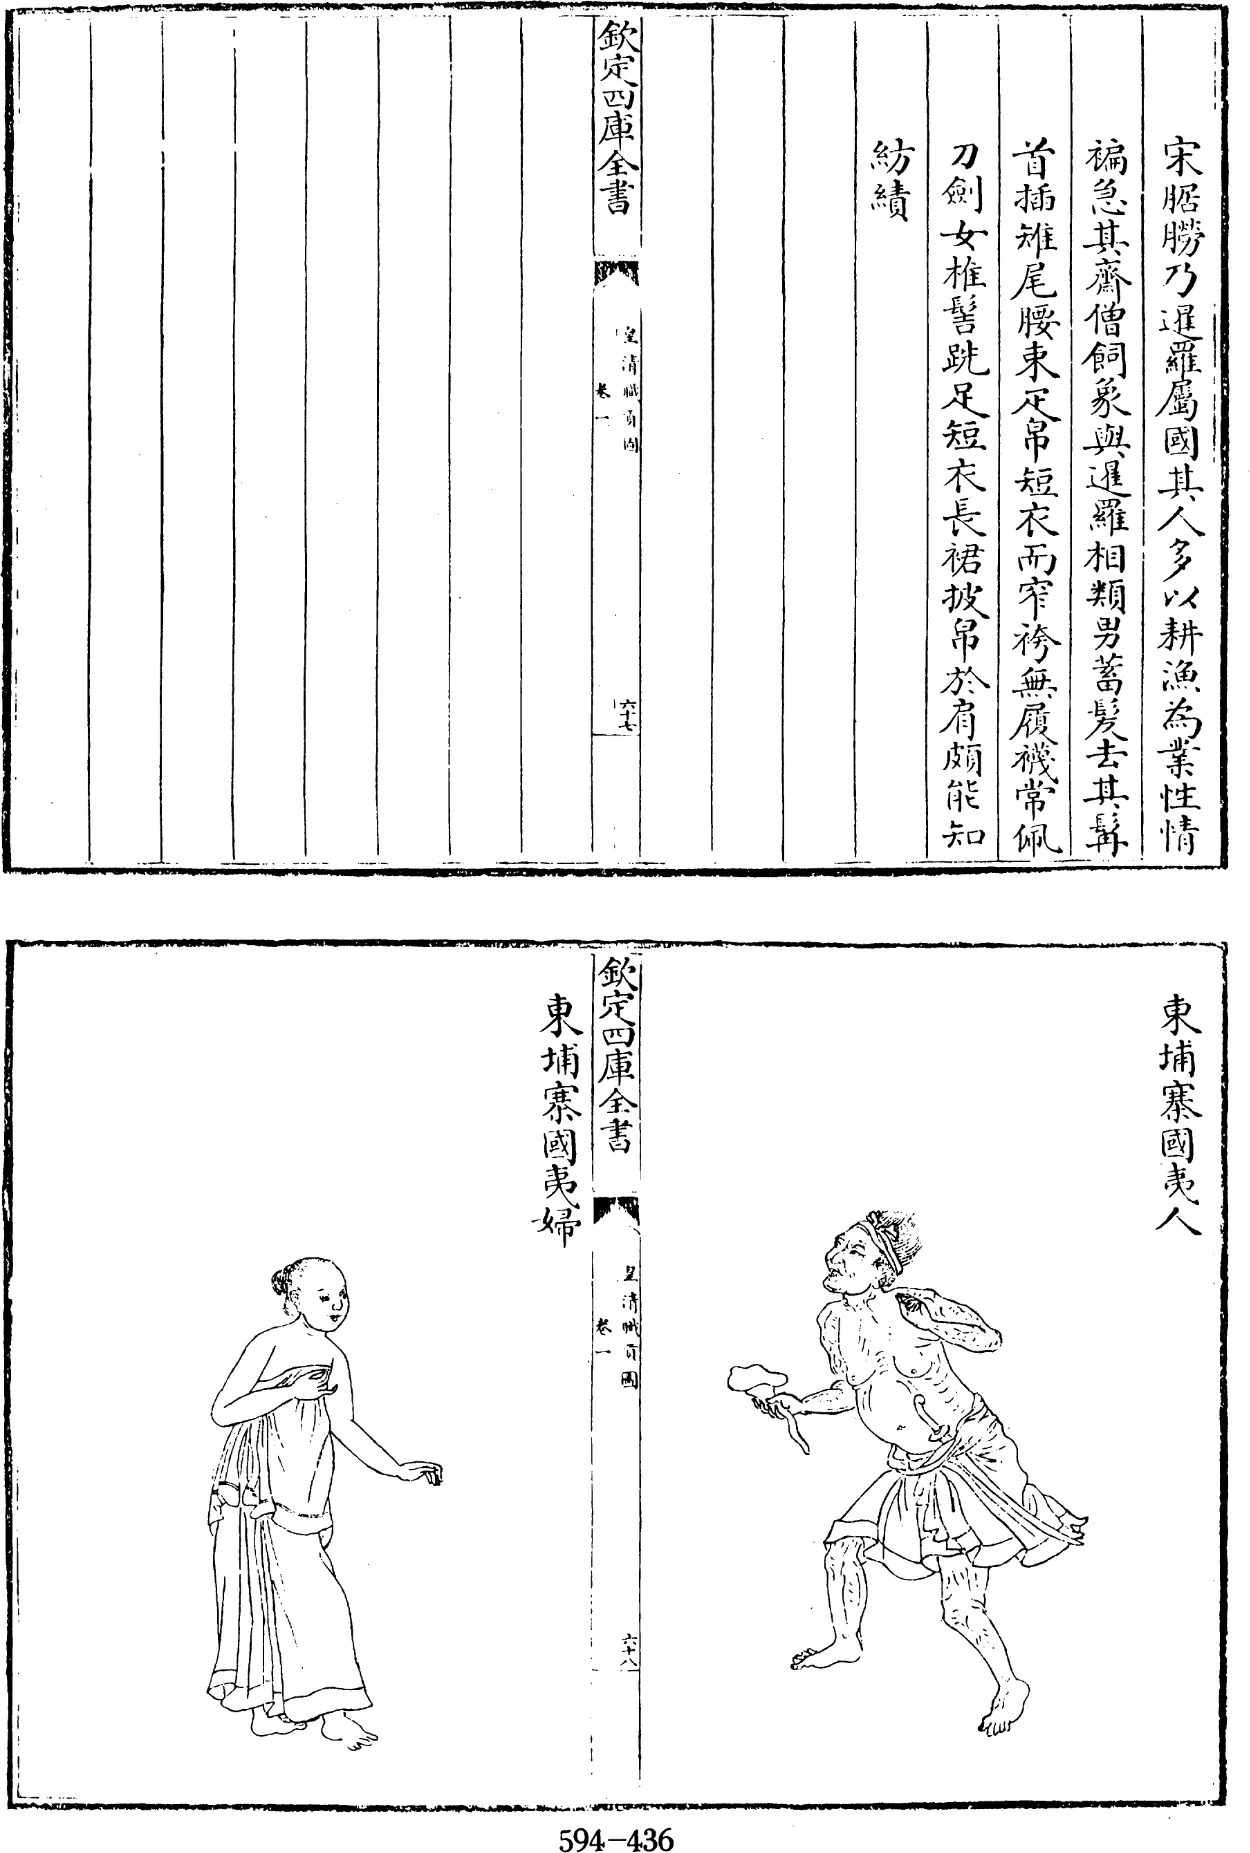 宋腒朥乃暹羅屬國其人多以耕漁為業性情
褊急其齋僧飼象與暹羅相類男蓄髮去其髯
首插雉尾腰束疋帛短衣而窄袴無履襪常佩
刀劍女椎髻跣足短衣長裙披帛於肩頗能知
紡績
欽定四庫全書
皇清職貢圖
卷一
六十七
東埔寨國夷人
欽定四庫全書
皇清職貢圖
卷一
六十八
東埔寨國夷婦
594-436